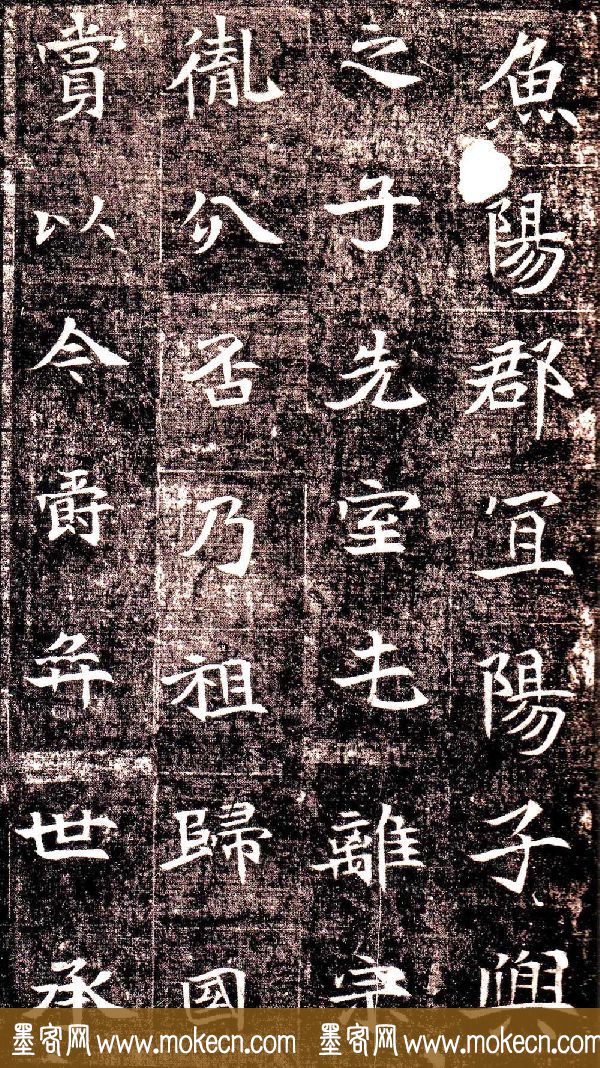 魚陽郡宜陽子興
之子先室屯離宗
胤分否乃祖歸國
賞以今爵弈世承
墨客网 www.mokecn.com 墨客网 www.mokecn.com